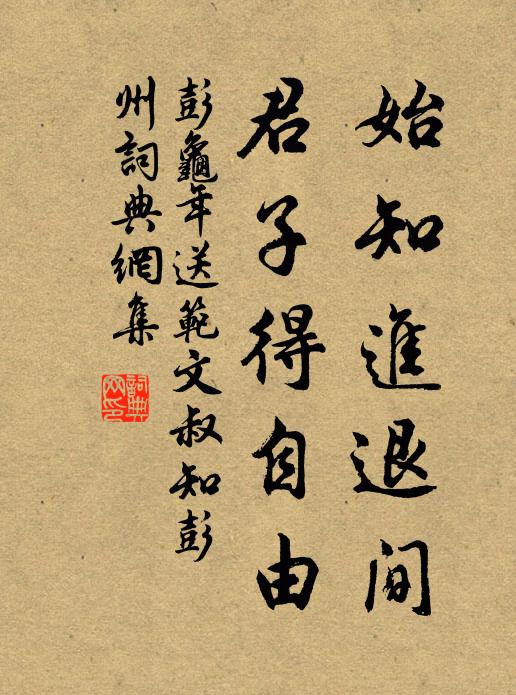 始知進退間
君子得自由
彭龜年送範文叔知彭
州詞典網集
詞典
网印